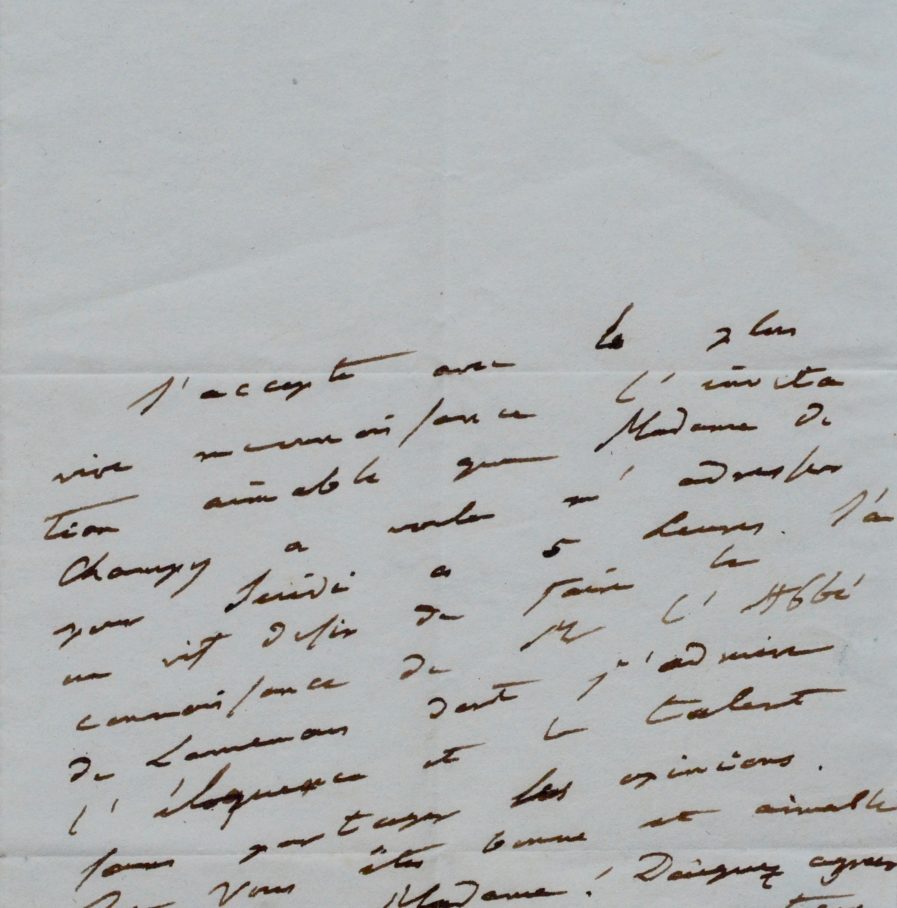 J'accepte avec la plus
vive reconnoissance l'invita
tion aimable que Madame de
Champy a voulu m'adresser
pour Jeudi a 5 heures. J'ai
un vif desir de faire la
connoissance de Mr l'Abbé
de Lamenais dont j'admire
l'éloquence et le talent
sans partager les opinions.
Que Vous êtes bonne et aimable
Madame! Daignez agréer